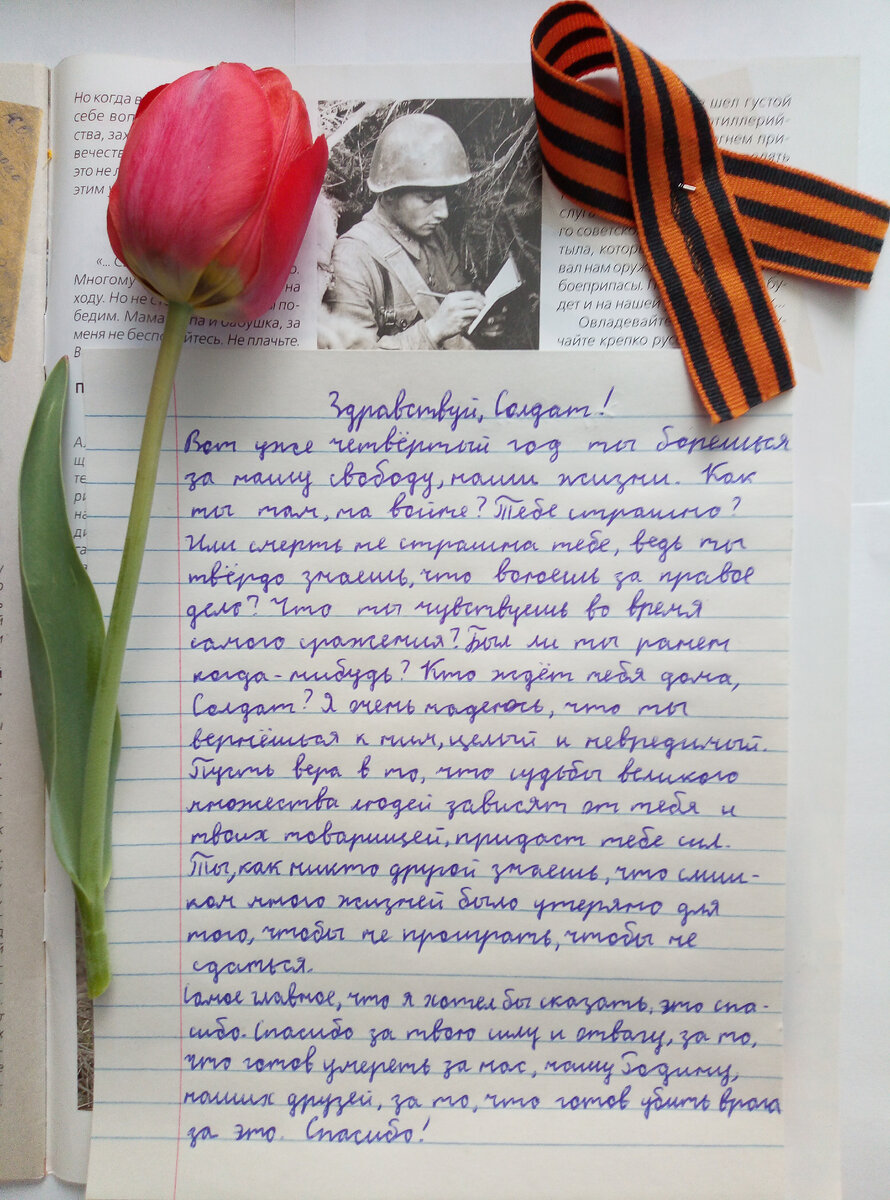 Но когда в
себе воп
ства, зах
вечеств
это не л
этим у
«... С
Многому на
ходу. Но не ст м по-
бедим. Мама па и бабушка, за
меня не беспо йтесь. Не плачьте.
В
шел густой
ртиллерий-
гнем при-
олять
слу
го советско
тыла, котор
вал нам оруж
боеприпасы. П бу-
дет и на нашей
Овладевайте
чайте крепко рус
Здравствуй, Солдат!
Вот уже четвёртый год ты борешься
за нашу свободу, наши жизни. Как
ты там, на войне? Тебе страшно?
Или смерть не страшна тебе, ведь ты
твёрдо знаешь, что воюешь за правое
дело? Что ты чувствуешь во время
самого сражения? Был ли ты ранен
когда-нибудь? Кто ждёт тебя дома,
Солдат? Я очень надеюсь, что ты
вернёшься к ним, целый и невредимый.
Пусть вера в то, что судьбы великого
множества людей зависят от тебя и
твоих товарищей, придаст тебе сил.
Ты, как никто другой знаешь, что слиш-
ком много жизней было утеряно для
того, чтобы не проиграть, чтобы не
сдаться.
Самое главное, что я хотел бы сказать, это спа-
сибо. Спасибо за твою силу и отвагу, за то,
что готов умереть за нас, нашу Родину,
наших друзей, за то, что готов убить врага
за это. Спасибо!